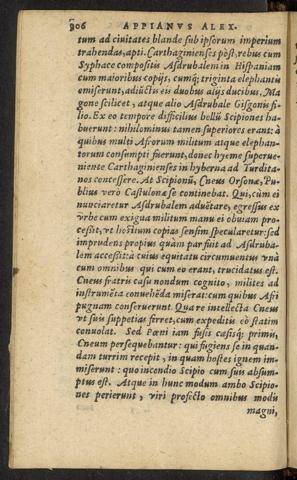 906 APPIANVS ALEX.
tum ad ciuitates blande sub ipsorum imperium
trahendas, apti. Carthaginienses pòst, rebus cum
Syphace compositis Asdrubalem in Hispaniam
cum maioribus copijs, cumq; triginta elephantis
emiserunt, adiũctis eis duobus alijs ducibus. Ma
gone scilicet, atque alio Asdrubale Gisgonis fi-
lio. Ex eo tempore difficilius bellũ Scipiones ha-
buerunt: nihilominus tamen superiores erant: à
quibus multi Afrorum militum atque elephan-
torum consumpti fuerunt, donec hyeme superue-
niente Carthaginienses in hyberna ad Turdita-
nos concessere. At Scipionũ, Cneus Orsonæ, Pu-
blius verò Castulonæ se continebat. Qui, cùm ei
nunciaretur Asdrubalem aduẽtare, egressus ex
vrbe cum exigua militum manu ei obuiam pro-
cessit, vt hostium copias sensim specularetur: sed
imprudens propius quàm par fuit ad Asdruba-
lem accessit: à cuius equitatu circumuentus vnà
cum omnibus qui cum eo erant, trucidatus est.
Cneus fratris casu nondum cognito, milites ad
instrumẽta conuehẽda miserat: cum quibus Afri
pugnam conseruerunt. Quare intellecta Cneus
vt suis suppetias ferret, cum expeditis eò statim
conuolat. Sed Pœni iam fusis casisq; primis,
Cneum persequebantur: qui fugiens se in quan-
dam turrim recepit, in quam hostes ignem im-
miserunt: quo incendio Scipio cum suis absum-
ptus est. Atque in hunc modum ambo Scipio-
nes perierunt, viri profectò omnibus modis
magni,